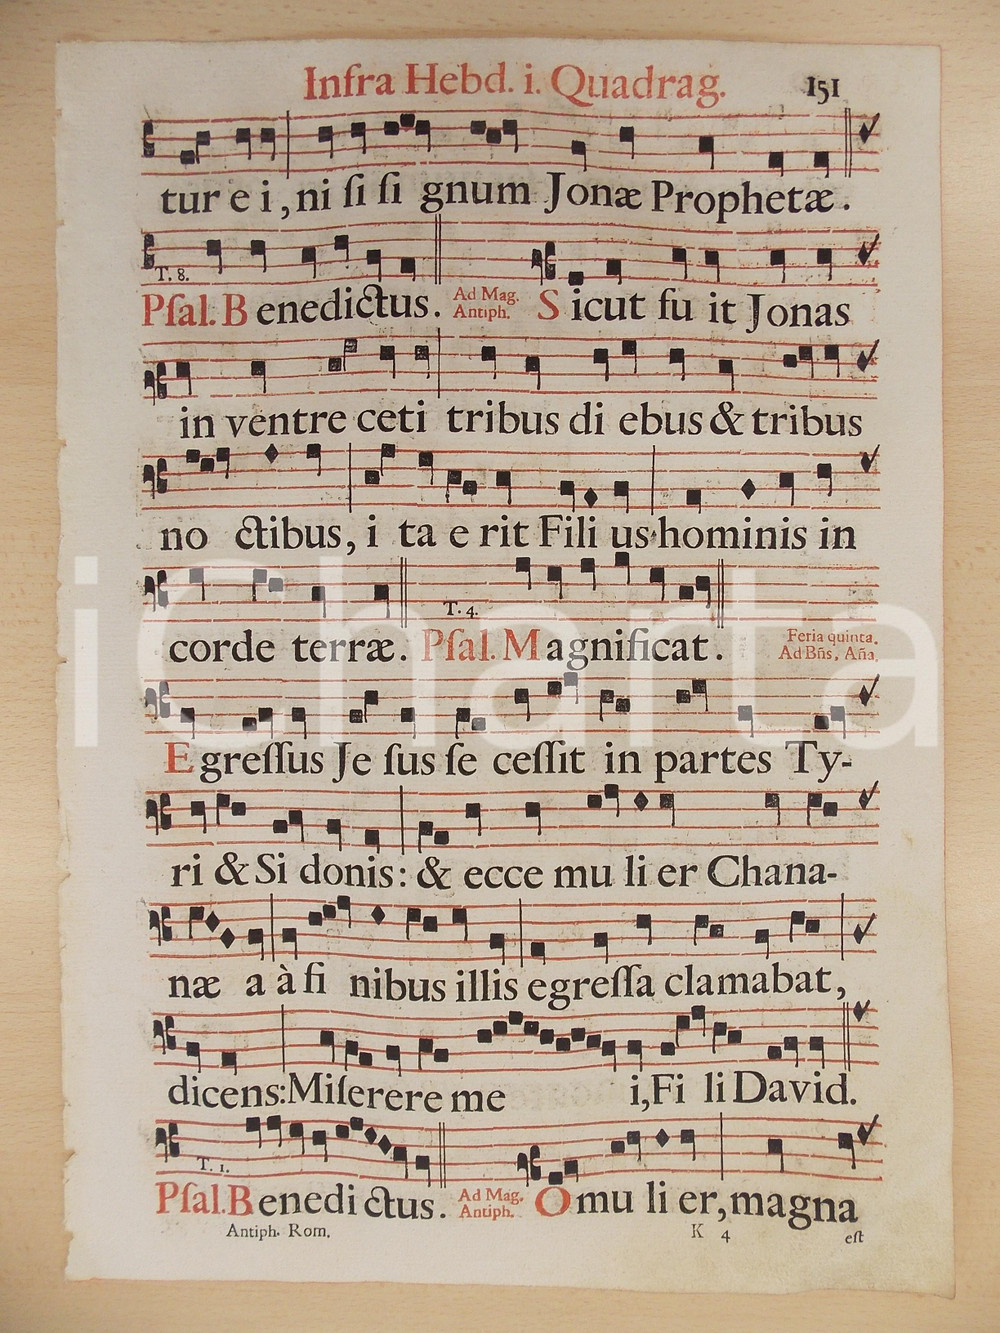 Infra Hebd. i. Quadrag. 151
tur e i, ni ſi ſi gnum Jonæ Prophetæ.
T. 8.
Pſal. B enedictus. Ad Mag. Antiph. S icut fu it Jonas
in ventre ceti tribus di ebus & tribus
no ctibus, i ta e rit Fili us hominis in
T. 4.
corde terræ. Pſal. M agnificat. Feria quinta. Ad Bñs, Aña.
E greſſus Je ſus ſe ceſſit in partes Ty-
ri & Si donis: & ecce mu li er Chana-
næ a à fi nibus illis egreſſa clamabat,
dicens: Miſerere me i, Fi li David.
T. 1.
Pſal. B enedi ctus. Ad Mag. Antiph. O mu li er, magna
Antiph. Rom. K 4 eſt
iCharta